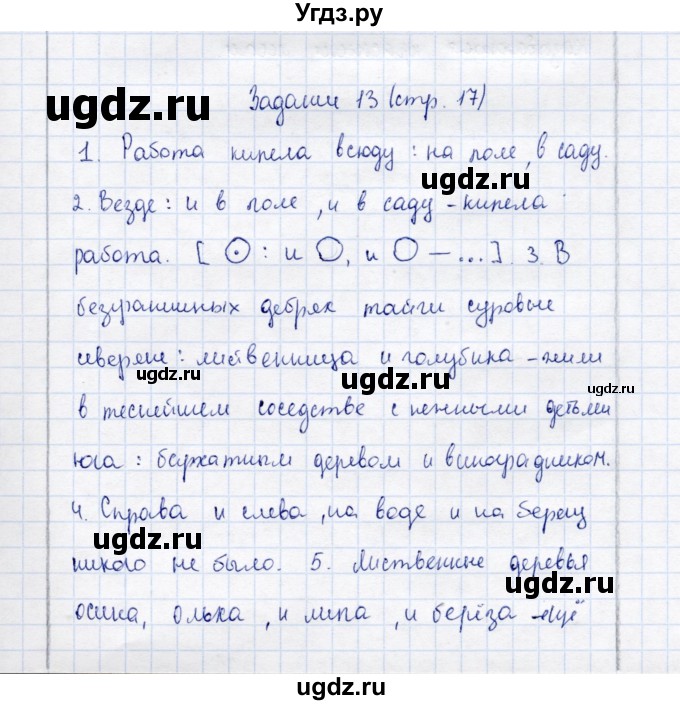 Угдз.ру
ugdz.ru
Задание 13 (стр. 17)
1. Работа кипела всюду: на поле, в саду.
ugdz.ru
2. Везде: и в поле, и в саду - кипела
работа. [⊙: и ◯, и ◯ — ...]. 3. В
безграничных дебрях тайги суровые
северяне: лиственница и голубика - жили
ugdz.ru ugdz.ru ugdz.ru
в теснейшем соседстве с нежными детьми
юга: бархатным деревом и виноградником.
4. Справа и слева, на воде и на берегу
ugdz.ru
никого не было. 5. Лиственные деревья
ugdz.ru
осина, ольха, и липа, и берёза - ещё
ugdz.ru